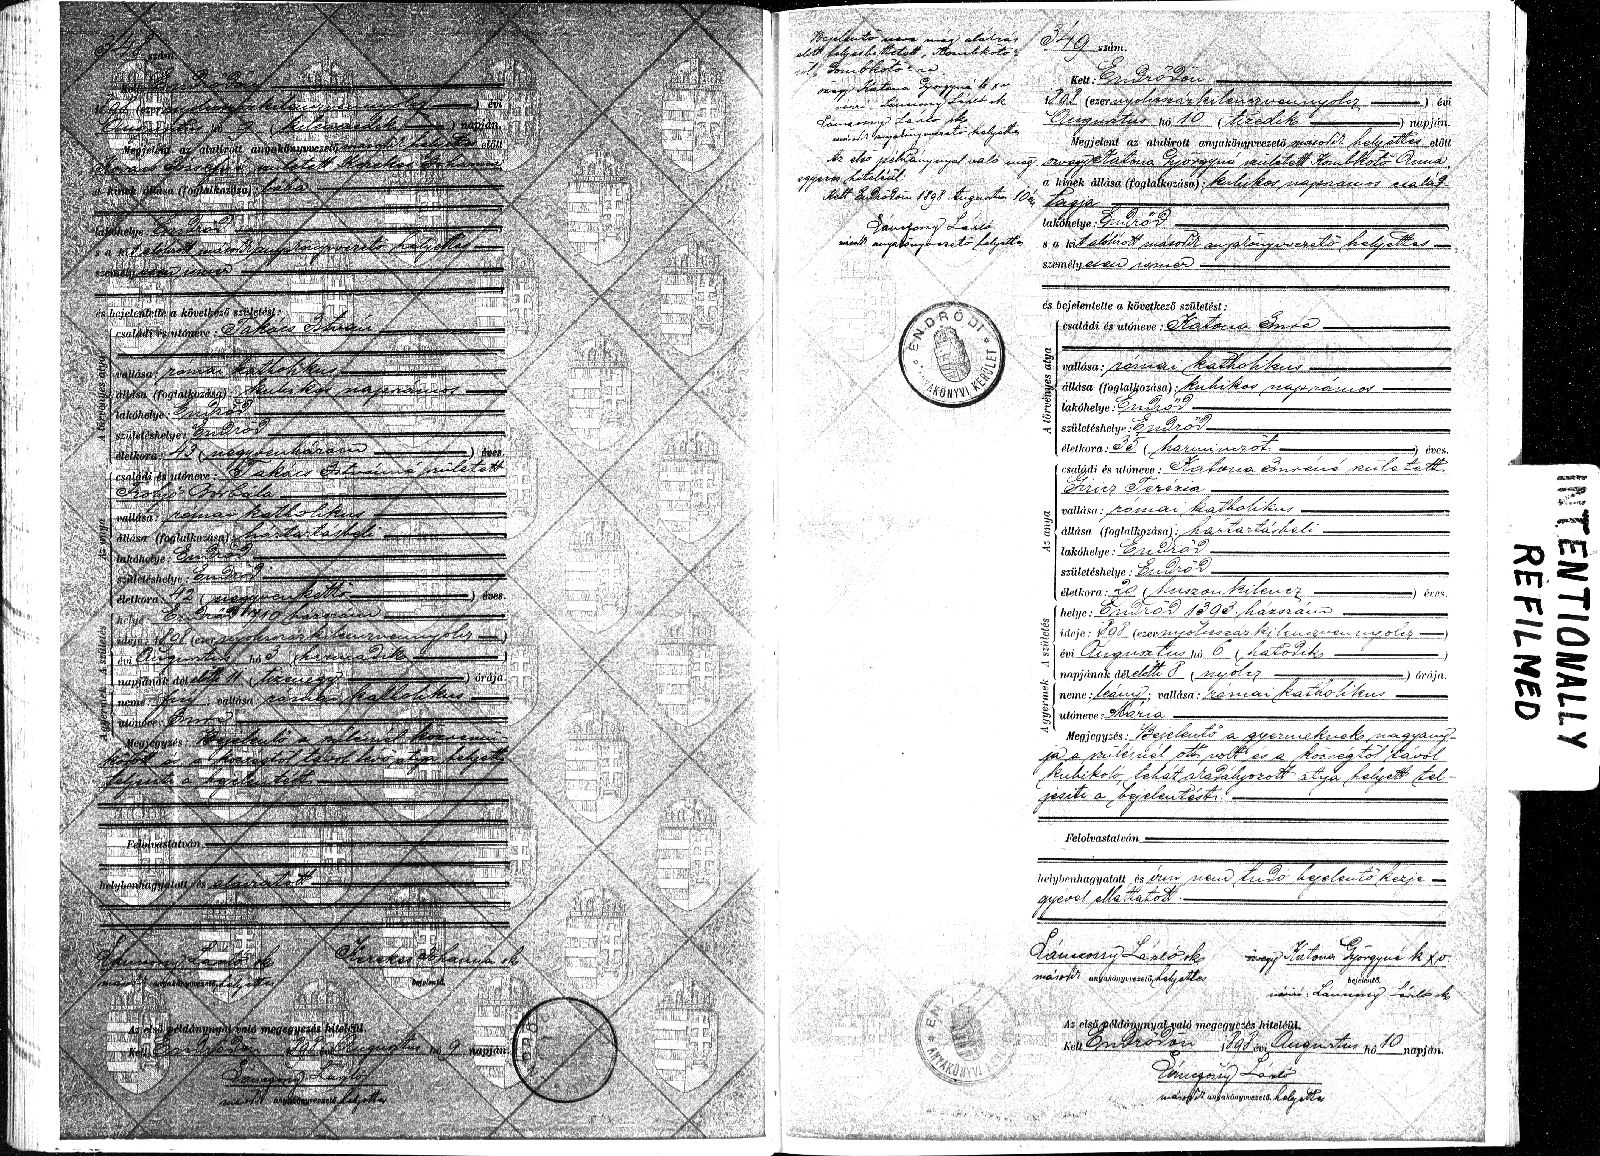 348 szám.
Kelt: Endrődön
1898 (ezernyolczszázkilenczvennyolcz) évi
Augusztus hó 9 (kilenczedik) napján.
Megjelent az alulirott anyakönyvvezető másodk helyettes előtt
született Kerekes Johanna
a kinek állása (foglalkozása): bába
lakóhelye: Endrőd
s a kit alólirott másodk anyakönyvvezető helyettes
személyesen ismer
és bejelentette a következő születést:
A törvényes atya
családi és utóneve: Takács István
vallása: római katholikus
állása (foglalkozása): kubikos napszámos
lakóhelye: Endrőd
születéshelye: Endrőd
életkora: 43 (negyvenhárom) éves.
Az anya
családi és utóneve: Takács Istvánné született
Borbála
vallása: római katholikus
állása (foglalkozása): háztartásbeli
lakóhelye: Endrőd
születéshelye: Endrőd
életkora: 42 (negyvenkettő) éves.
A születés
helye: Endrőd házszám
ideje: 1898 (ezernyolczszázkilenczvennyolcz)
évi Augusztus hó 3 (harmadik)
napjának délelőtti 11 (tizenegy) órája.
A gyermek
neme: fiú; vallása: római katholikus
utóneve: Imre
Megjegyzés: Bejelentő a szülésnél közremű-
ködött és a községtől távol lévő atya helyett
teljesiti a bejelentést
Felolvastatván
helybenhagyatott és aláiratott
Lánczony László sk
másodk anyakönyvvezető helyettes
Kerekes Johanna sk
bejelentő.
Az első példánynyal való megegyezés hiteléül.
Kelt Endrődön 1898 évi Augusztus hó 9 napján.
Lánczony László
másodk anyakönyvvezető helyettes
Bejelentő neve még aláirás
előtt helyesbittetett „Gombkötő"-
ről „Gombkötő"-re.
özvegy Katona Györgyné k x v
Lánczony László sk
Lánczony László sk
másodk anyakönyvvezető helyettes
Az első példánynyal való meg-
egyezés hiteléül.
Kelt Endrődön 1898 Augusztus 10én
Lánczony László
másodk anyakönyvvezető helyettes
ENDRŐDI
ANYAKÖNYVI KERÜLET
349 szám.
Kelt: Endrődön
1898 (ezernyolczszázkilenczvennyolcz) évi
Augusztus hó 10 (tizedik) napján.
Megjelent az alulirott anyakönyvvezető másodk helyettes előtt
özvegy Katona Györgyné született Gombkötő Anna
a kinek állása (foglalkozása): kubikos napszámos család
tagja
lakóhelye: Endrőd
s a kit alólirott másodk anyakönyvvezető helyettes
személyesen ismer
és bejelentette a következő születést:
A törvényes atya
családi és utóneve: Katona Imre
vallása: római katholikus
állása (foglalkozása): kubikos napszámos
lakóhelye: Endrőd
születéshelye: Endrőd
életkora: 35 (harminczöt) éves.
Az anya
családi és utóneve: Katona Imréné született
Giricz Terézia
vallása: római katholikus
állása (foglalkozása): háztartásbeli
lakóhelye: Endrőd
születéshelye: Endrőd
életkora: 29 (huszonkilencz) éves.
A születés
helye: Endrőd 1303 házszám
ideje: 1898 (ezernyolczszázkilenczvennyolcz)
évi Augusztus hó 6 (hatodik)
napjának délelőtti 8 (nyolcz) órája.
A gyermek
neme: leány; vallása: római katholikus
utóneve: Mária
Megjegyzés: Bejelentő a gyermeknek nagyany-
ja a szülésnél ott volt és a községtől távol
kubikoló, tehát akadályozott atya helyett tel-
jesiti a bejelentést.
Felolvastatván
helybenhagyatott és irni nem tudó bejelentő kézje-
gyével elláttatott.
Lánczony László sk
másodk anyakönyvvezető helyettes
özvegy Katona Györgyné k x v
bejelentő.
Lánczony László sk
Az első példánynyal való megegyezés hiteléül.
Kelt Endrődön 1898 évi Augusztus hó 10 napján.
Lánczony László
másodk anyakönyvvezető helyettes
INTENTIONALLY
REFILMED